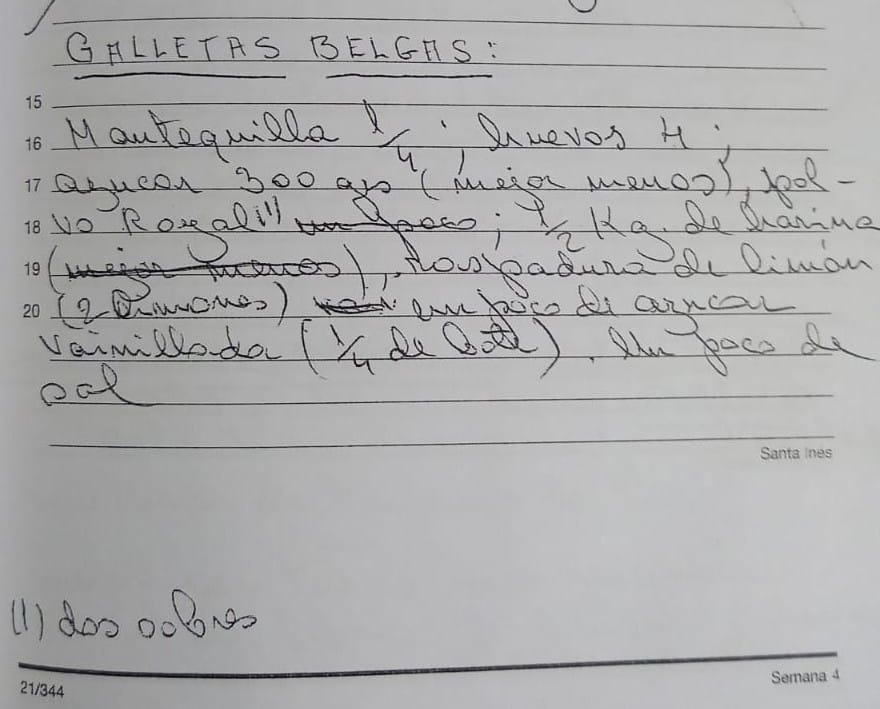 GALLETAS BELGAS:
15
16 Mantequilla 1/4; huevos 4;
17 azucar 300 grs (mejor menos), pol-
18 vo Royal (1) un poco; 1/2 Kg. de harina
19 (mejor menos), Raspadura de limón
20 (2 limones) un poco de azucar
Vainillada (1/4 de bote). Un poco de
sal
Santa Inés
(1) dos sobres
21/344
Semana 4